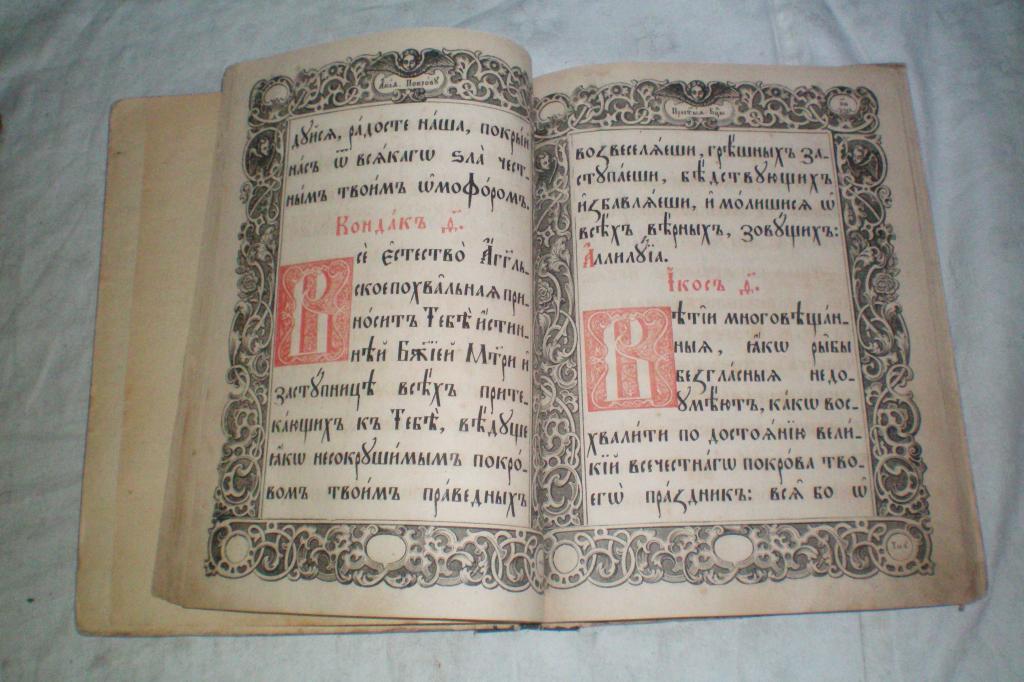 Акаѳ. Покровꙋ
дꙋйсѧ, ра́досте на́ша, покры́й
на́съ ѿ всѧ́кагѡ ѕла̀ чест-
ны́мъ твои́мъ ѡ҆мофо́ромъ.
Конда́къ
Всѐ є҆стество̀ а҆́гг҃ль-
ское похва́льнаѧ при-
но́ситъ Тебѣ̀ и҆́стин-
нѣй Бж҃їей Мт҃ри и҆
застꙋ́пницѣ всѣ́хъ прите-
ка́ющихъ къ Тебѣ̀, вѣ́дꙋще
ꙗ҆́кѡ несокрꙋши́мымъ покро́-
вомъ твои́мъ пра́ведныхъ
Прест҃ыѧ Бцы
возвеселѧ́еши, грѣ́шныхъ за-
стꙋпа́еши, бѣ́дствꙋющихъ
и҆збавлѧ́еши, и҆ мо́лишисѧ ѡ҆
всѣ́хъ вѣ́рныхъ, зовꙋ́щихъ:
А҆ллилꙋ́їа.
І҆́косъ
Вѣті̑и многовѣща́н-
ныѧ, ꙗ҆́кѡ ры̑бы
безгла́сныѧ недо-
ꙋмѣ́ютъ, ка́кѡ вос-
хвали́ти по достоѧ́нїю вели́-
кїй всечестна́гѡ покро́ва тво-
егѡ̀ пра́здникъ: всѧ̑ бо ѿ